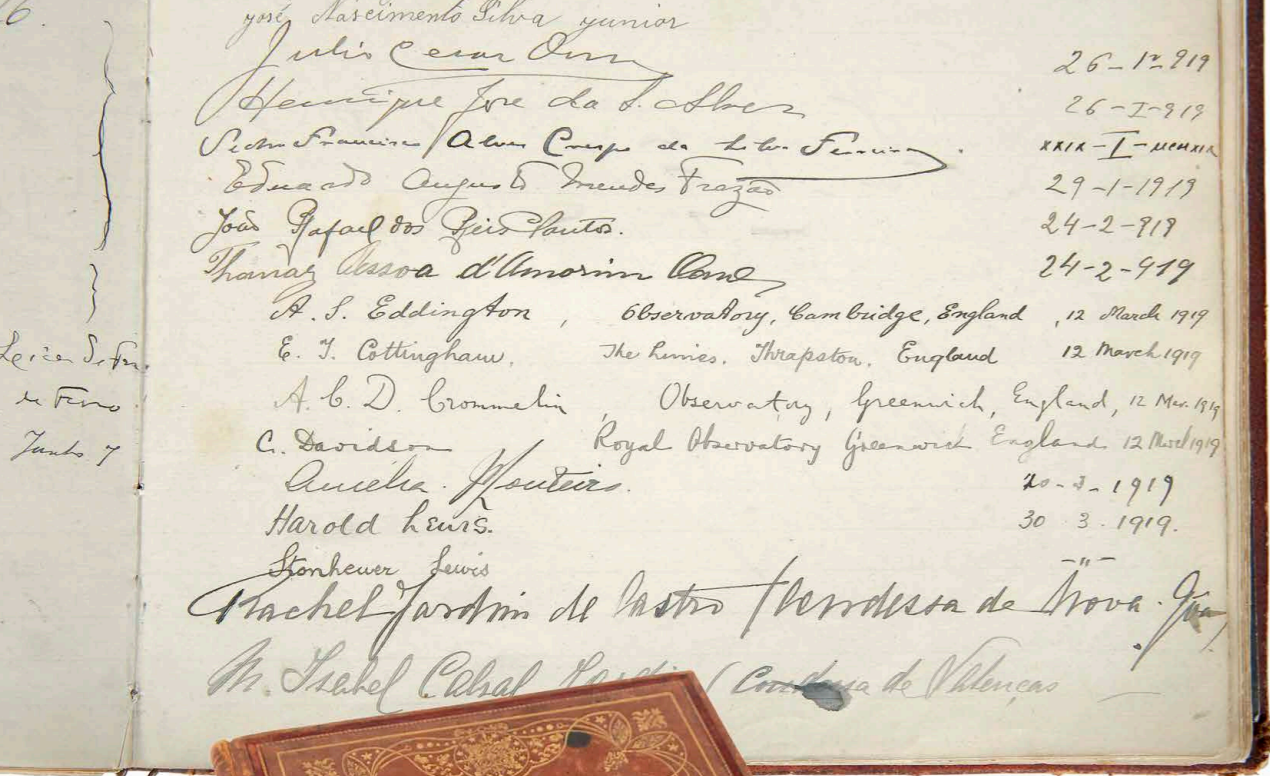 6.
José Nascimento Silva junior
Julio Cesar 26-1º-919
Henrique José da S. Alves 26-I-919
Pedro Francisco Alves Crespo da Silva Ferreira. XXIX-I-MCMXIX
Eduardo Augusto Mendes Frazão 29-1-1919
João Rafael dos Reis Santos. 24-2-919
Thomaz d'Amorim 24-2-919
A. S. Eddington, Observatory, Cambridge, England, 12 March 1919
E. T. Cottingham. The Thrapston, England 12 March 1919
A. C. D. Crommelin, Observatory, Greenwich, England, 12 Mar. 1919
C. Davidson Royal Observatory Greenwich England 12 March 1919
de Ferro
Junho 7
Amélia Monteiro. 1919
Harold Lewis. 30 3. 1919.
Stonhewer Lewis -"-
Rachel Jardim de Castro (Condessa de Nova Goa)
M. Isabel Cabral (Condessa de Valenças